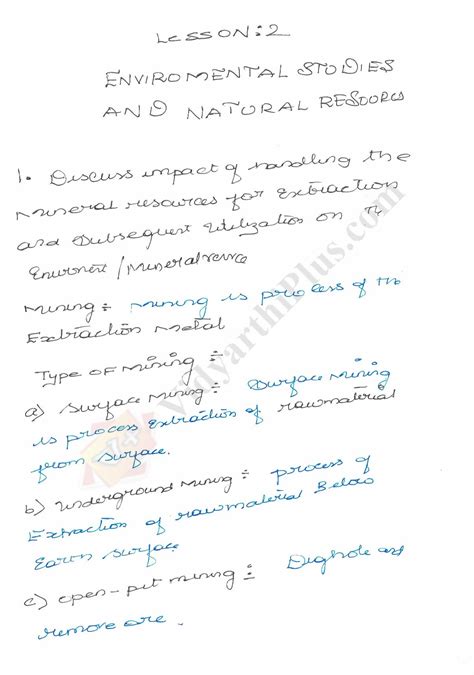 LESSON:2
ENVIROMENTAL STUDIES
AND NATURAL RESOORCS
1. Discuss impact of handling the
mineral resources for Extraction
and subsequent Utilization on
/ Mineral
Mining :- Mining is process of the
Extraction Metal
Type OF Mining :-
a) Surface Mining :- Surface Mining
is process Extraction of rawmaterial
from surface.
b) Underground Mining :- process of
Extraction of rawmaterial Below
Earth Surface
c) open-pit mining :- Dighole and
remove ore.
VidyarthiPlus.com
V+